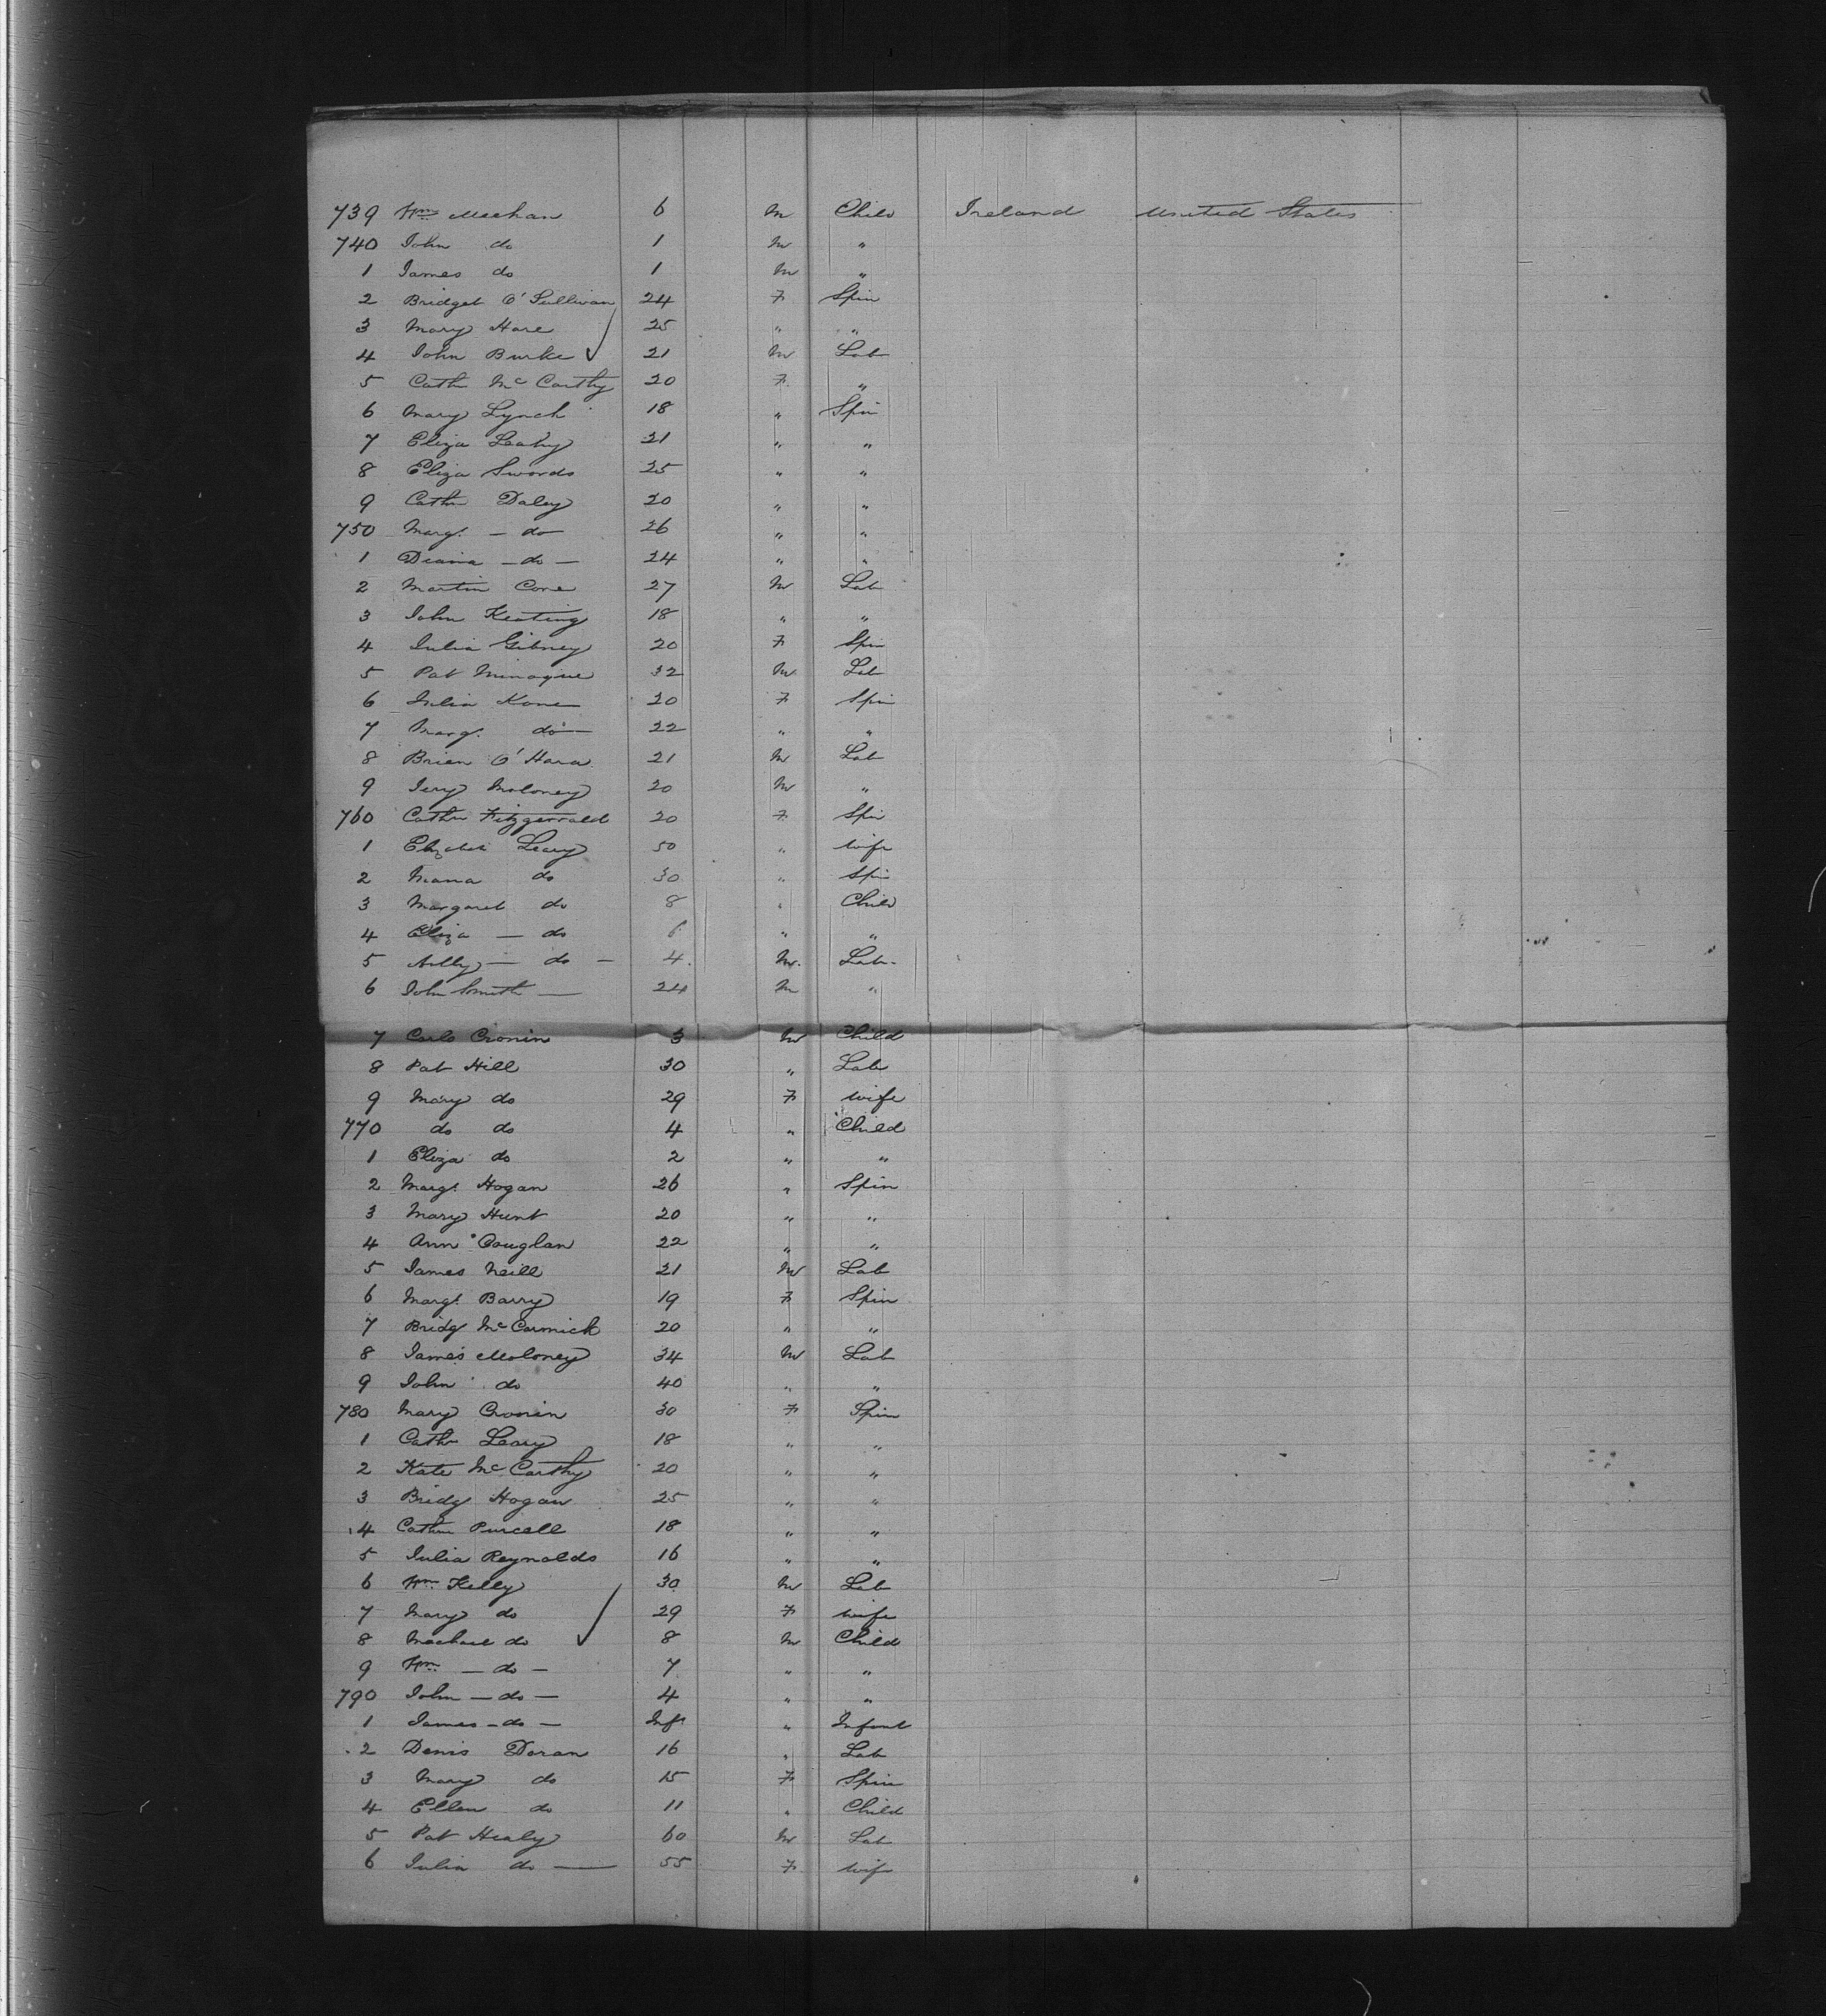 739 Wm Meehan 6 M Child Ireland United States
740 John do 1 M "
1 James do 1 M "
2 Bridget O'Sullivan 24 F Spin
3 Mary Hare 25 " "
4 John Burke 21 M Lab
5 Cath Mc Carthy 20 F "
6 Mary Lynch 18 " Spin
7 Eliza Leahy 21 " "
8 Eliza Swords 25 " "
9 Cathn Daley 20 " "
750 Margt. - do 26 " "
1 Diana - do - 24 " "
2 Martin Cone 27 M Lab
3 John Keating 18 " "
4 Julia Gibney 20 F Spin
5 Pat Minogue 32 M Lab
6 Julia Kane 20 F Spin
7 Marg. do 22 " "
8 Brien O'Hara 21 M Lab
9 Jery Moloney 20 M "
760 Cathn Fitzgerrald 20 F Spin
1 Leary 50 " Wife
2 Maria do 30 " Spin
3 Margaret do 8 " Child
4 Eliza - do 6 " "
5 - do - 4 M. Lab.
6 John Smith - 24 M "
7 Cronin 3 M Child
8 Pat Hill 30 " Lab
9 Mary do 29 F Wife
770 do do 4 " Child
1 Eliza do 2 " "
2 Margt. Hogan 26 " Spin
3 Mary Hunt 20 " "
4 Ann Couglan 22 " "
5 James Neill 21 M Lab
6 Margt. Barry 19 F Spin
7 Bridg Mc Cormick 20 " "
8 James Moloney 34 M Lab
9 John do 40 " "
780 Mary Cronin 30 F Spin
1 Cathn Leary 18 " "
2 Kate Mc Carthy 20 " "
3 Bridg Hogan 25 " "
4 Cathn Purcell 18 " "
5 Julia Reynolds 16 " "
6 Wm Kelly 30 M Lab
7 Mary do 29 F Wife
8 Machael do 8 M Child
9 Wm - do - 7 " "
790 John - do - 4 " "
1 James - do - Inft " Infant
2 Denis Doran 16 " Lab
3 Mary do 15 F Spin
4 Ellen do 11 " Child
5 Pat Healy 60 M Lab
6 Julia do - 55 F Wife